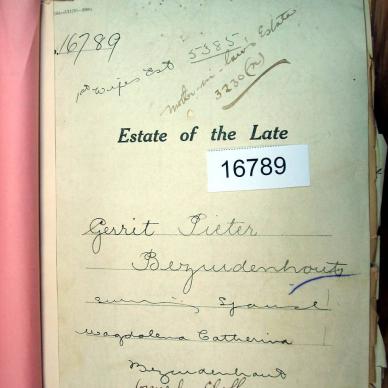 16789
1st Wifes Est 5385
Mother-in-laws Estate
3230
Estate of the Late
16789
Gerrit Pieter
Bezuidenhout
surviving Spouse
Magdalena Catherina
Bezuidenhout